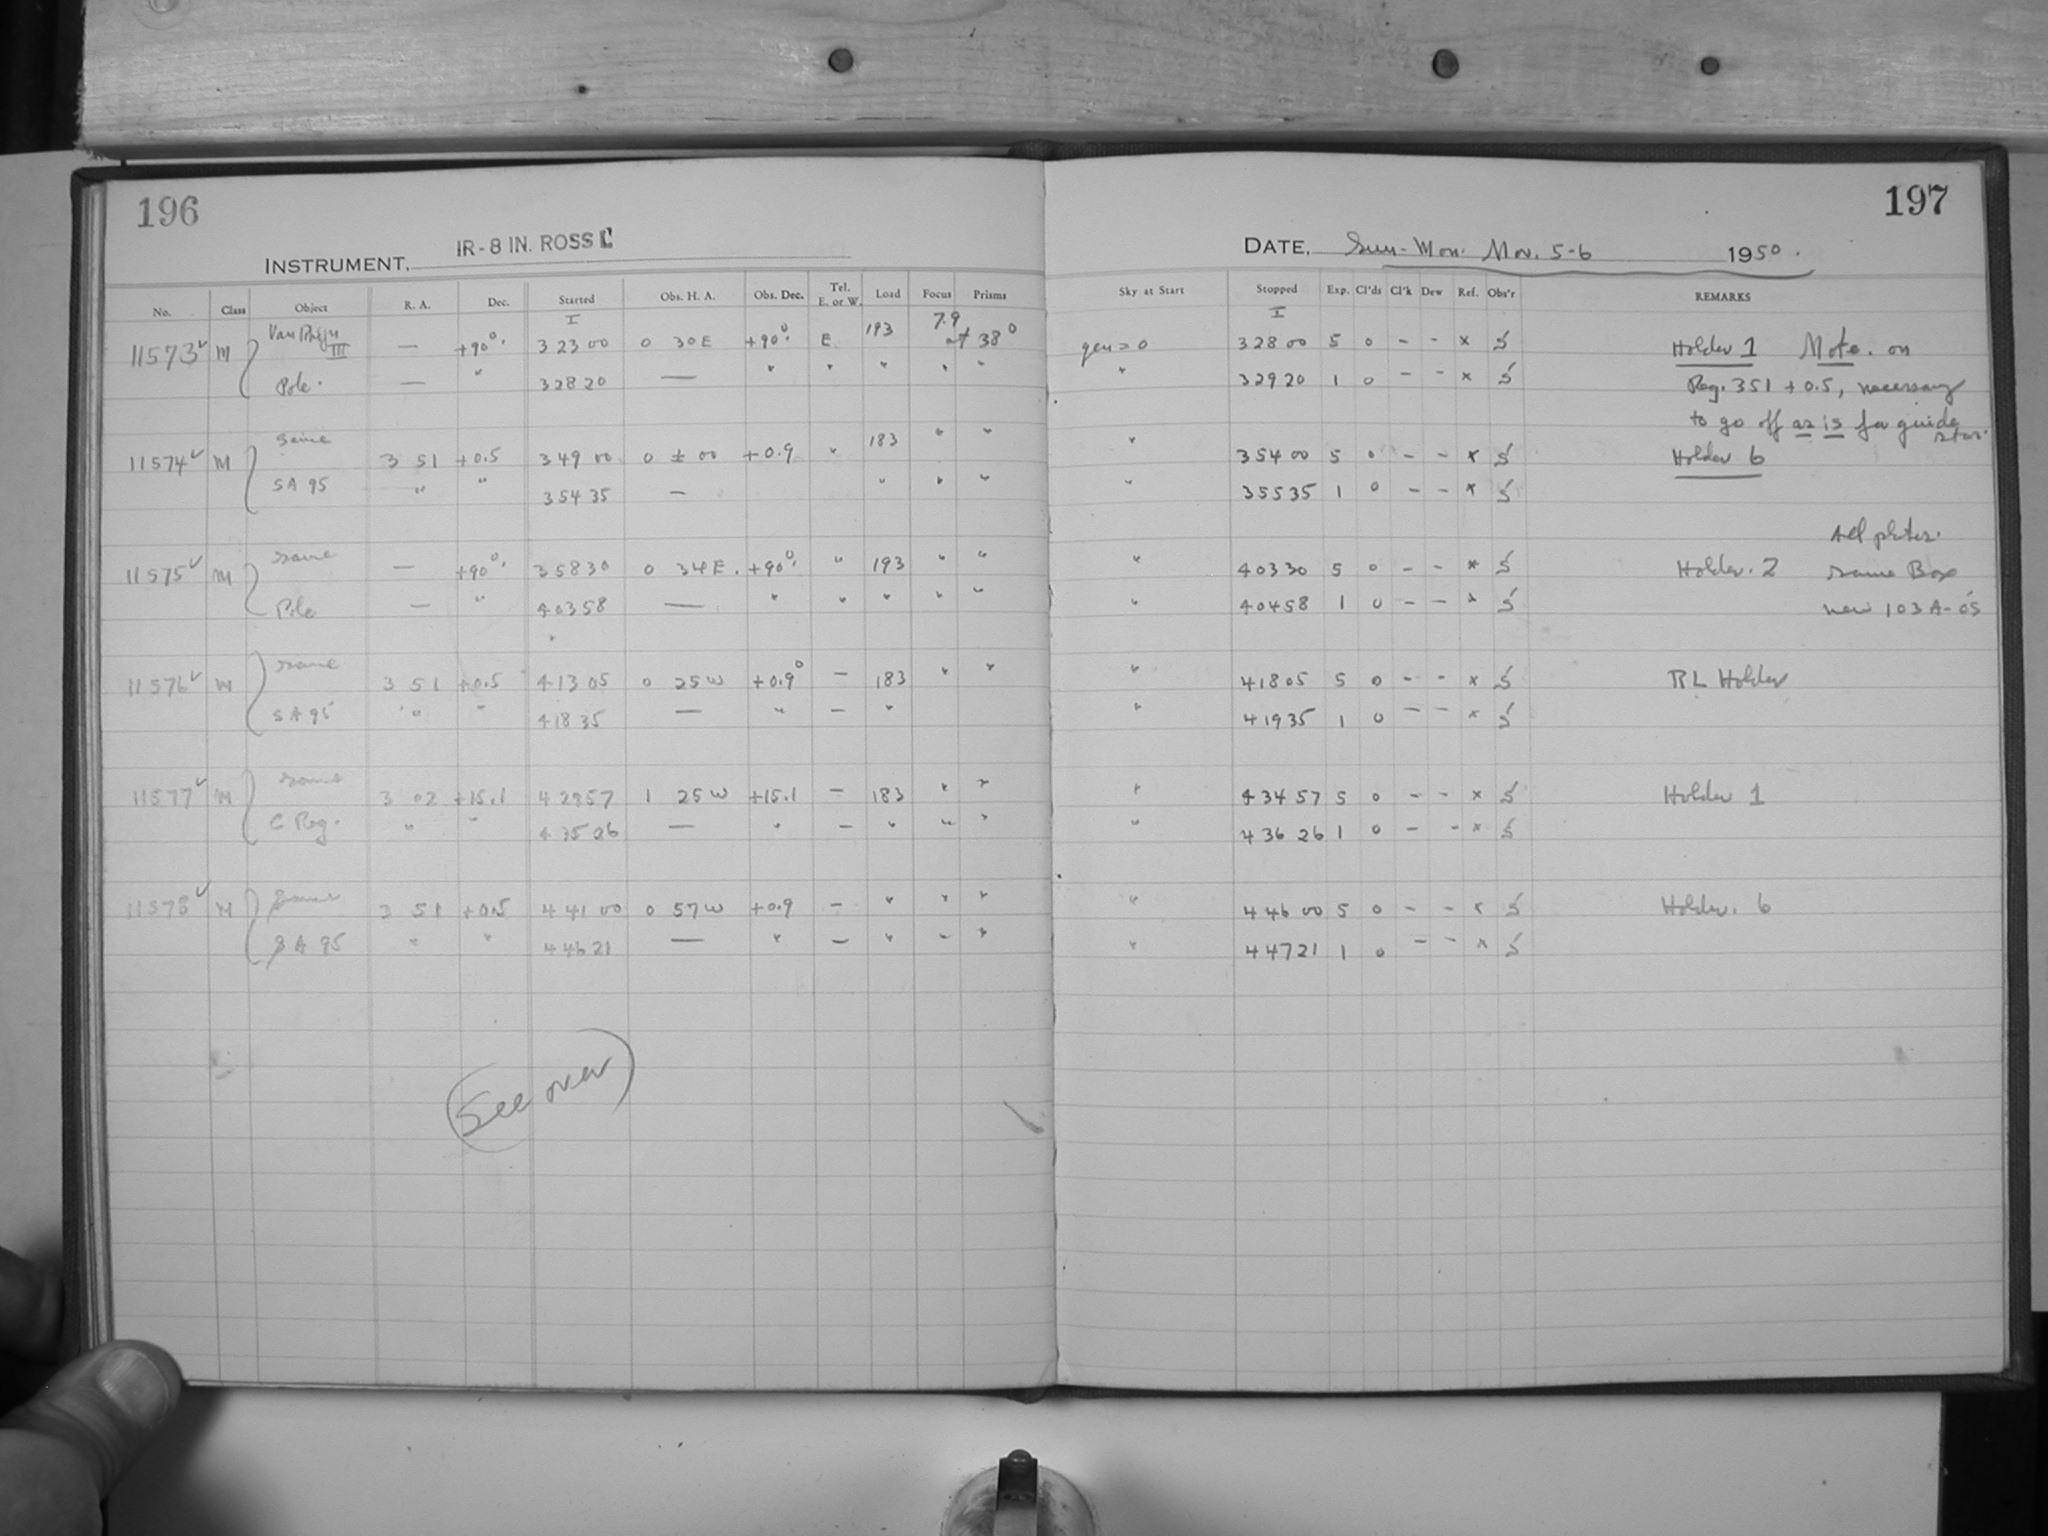 196
IR-8 IN. ROSS L
INSTRUMENT,
No. Class Object R. A. Dec. Started Obs. H. A. Obs. Dec. Tel. E. or W. Load Focus Prisms
I 7.9
11573 ✓ M III — +90° 3 23 00 0 30 E +90° E 193 at 38°
Pole. — " 3 28 20 — " " " " "
same 183 " "
11574 ✓ M 3 51 +0.5 3 49 00 0 ± 00 +0.9 "
SA 95 " " 3 54 35 — " " "
same
11575 ✓ M — +90° 3 58 30 0 34 E. +90° " 193 " "
Pole — " 4 03 58 — " " " " "
same
11576 ✓ M 3 51 +0.5 4 13 05 0 25 W +0.9° — 183 " "
SA 95 " " 4 18 35 — " — "
same
11577 ✓ M 3 02 +15.1 4 29 57 1 25 W +15.1 — 183 " "
C Reg. " " 4 35 26 — " — " " "
same
11578 ✓ M 3 51 +0.5 4 41 00 0 57 W +0.9 — " " "
SA 95 " " 4 46 21 — " — " — "
See over
197
DATE, Sun-Mon. Nov. 5-6 1950.
Sky at Start Stopped Exp. Cl'ds Cl'k Dew Ref. Obs'r REMARKS
I
3 28 00 5 0 - - x S Holder 1 Note. on
" 3 29 20 1 0 - - x S Reg. 351 + 0.5, necessary
to go off as is for guide star.
" 3 54 00 5 0 - - x S Holder 6
" 3 55 35 1 0 - - x S
All plates.
" 4 03 30 5 0 - - x S Holder. 2 same Box
" 4 04 58 1 0 - - x S new 103 A-Os
" 4 18 05 5 0 - - x S RL Holder
" 4 19 35 1 0 - - x S
" 4 34 57 5 0 - - x S Holder 1
" 4 36 26 1 0 - - x S
" 4 46 00 5 0 - - x S Holder. 6
" 4 47 21 1 0 - - x S